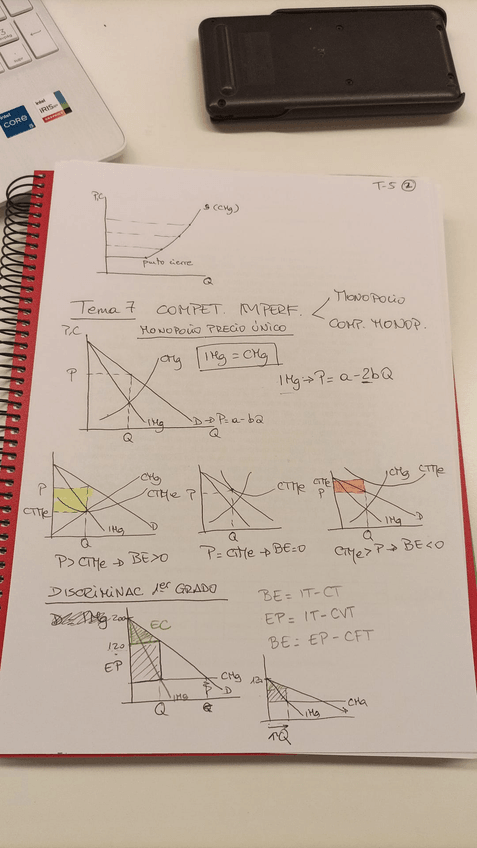 intel
CORE
i5
intel
iRIS xe
T-5 ②
P,C
S (CMg)
punto cierre
Q
Tema 7 COMPET. IMPERF.
MONOPOLIO
COMP. MONOP.
MONOPOLIO PRECIO ÚNICO
P,C
CMg
IMg = CMg
IMg → P = a - 2bQ
P
IMg
D → P = a - bQ
Q
Q
P
CTMe
CMg
CTMe
IMg
D
Q
P
CTMe
Q
CTMe
P
CMg
CTMe
IMg
D
Q
P > CTMe → BE > 0
P = CTMe → BE = 0
CTMe > P → BE < 0
DISCRIMINAC 1er GRADO
BE = IT - CT
EP = IT - CVT
BE = EP - CFT
200
EC
120
EP
CMg
IMg
P
D
Q
120
CMg
IMg
↑Q